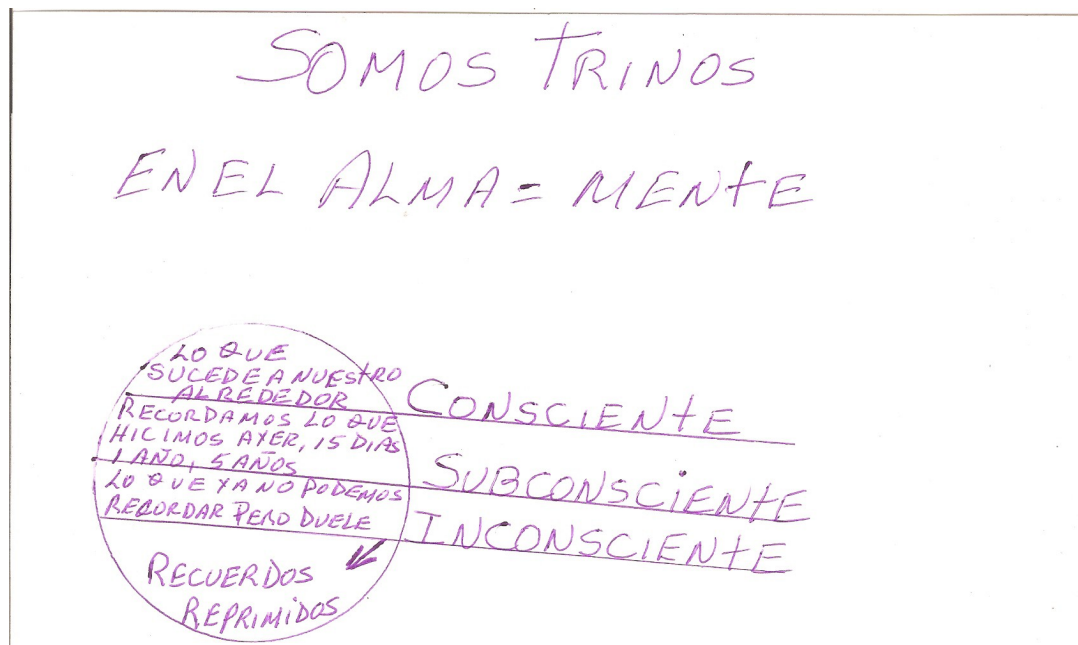 SOMOS TRINOS
EN EL ALMA = MENTE
LO QUE
SUCEDE A NUESTRO
ALREDEDOR
CONSCIENTE
RECORDAMOS LO QUE
HICIMOS AYER, 15 DIAS
1 AÑO, 5 AÑOS
SUBCONSCIENTE
LO QUE YA NO PODEMOS
RECORDAR PERO DUELE
INCONSCIENTE
RECUERDOS
REPRIMIDOS